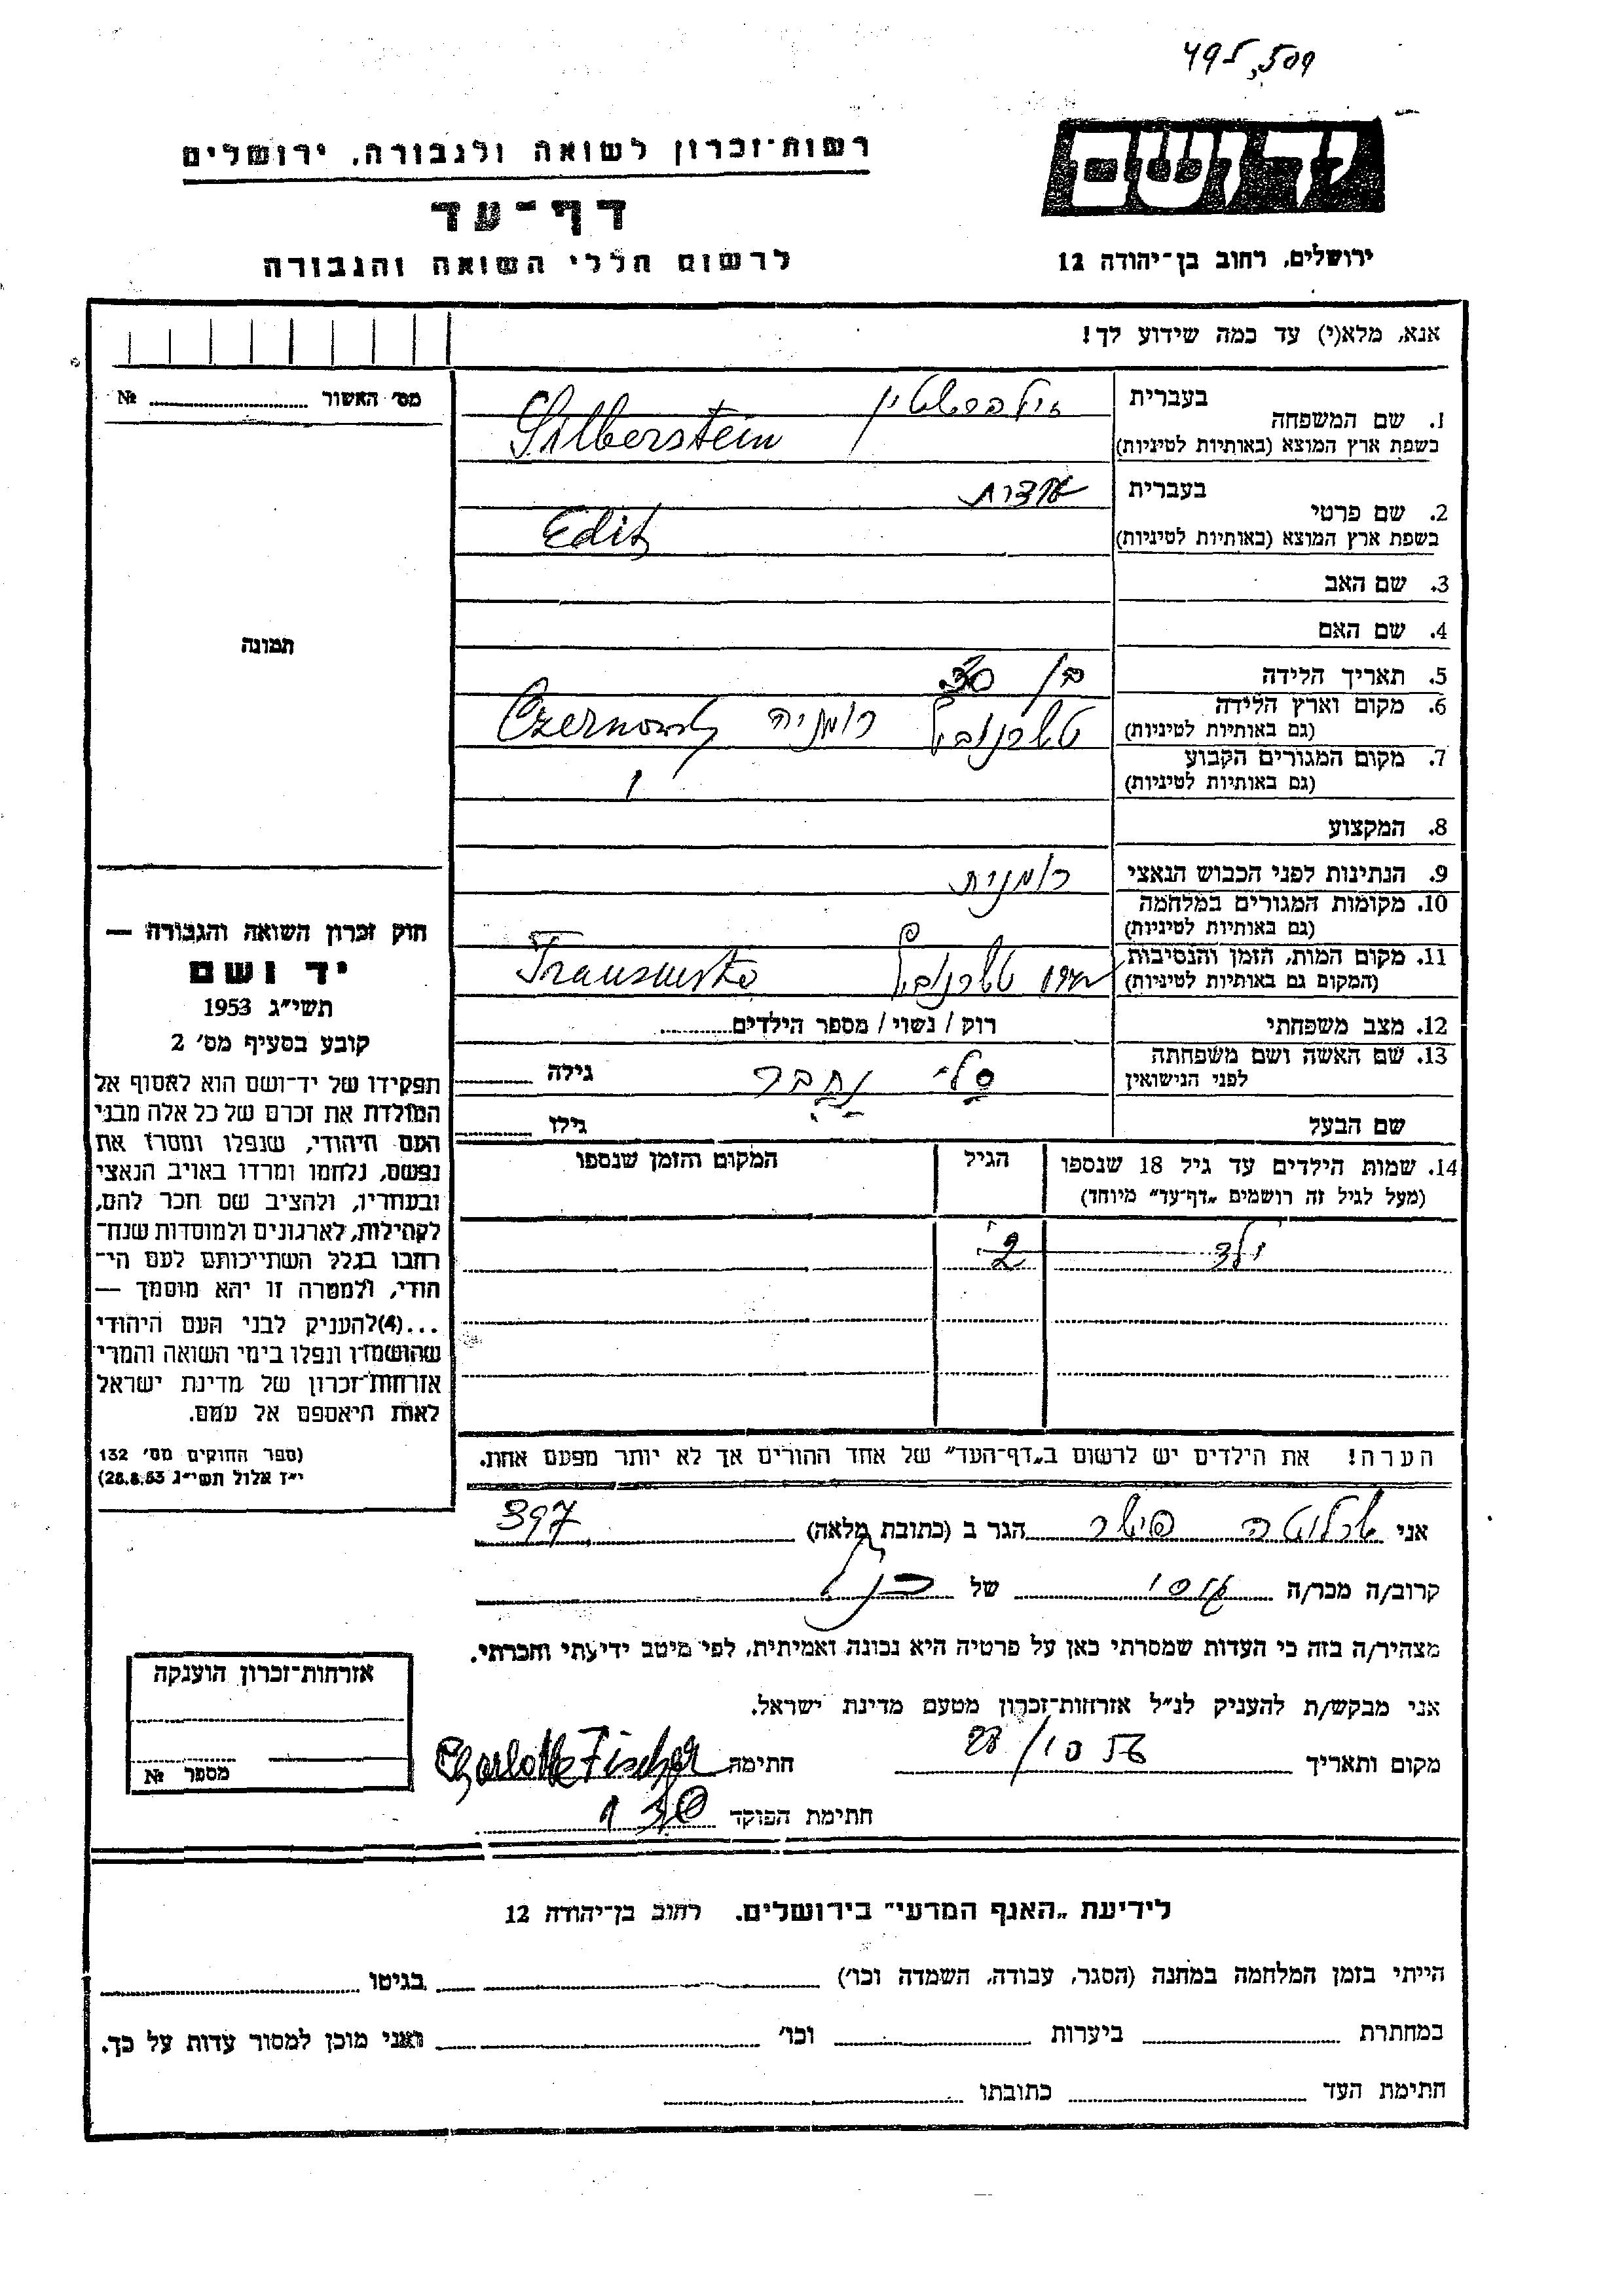 495,509
רשות־זכרון לשואה ולגבורה, ירושלים
דף־עד
לרשום חללי השואה והגבורה
יד ושם
ירושלים, רחוב בן־יהודה 12
אנא, מלא(י) עד כמה שידוע לך!
מס׳ האשור № 
תמונה
1. שם המשפחה
בעברית
זילברשטיין
בשפת ארץ המוצא (באותיות לטיניות)
Silberstein
2. שם פרטי
בעברית
בשפת ארץ המוצא (באותיות לטיניות)
Edith
3. שם האב
4. שם האם
5. תאריך הלידה
30
6. מקום וארץ הלידה
(גם באותיות לטיניות)
טשרנוביץ רומניה
7. מקום המגורים הקבוע
(גם באותיות לטיניות)
8. המקצוע
9. הנתינות לפני הכבוש הנאצי
רומנית
10. מקומות המגורים במלחמה
(גם באותיות לטיניות)
11. מקום המות, הזמן והנסיבות
(המקום גם באותיות לטיניות)
טשרנוביץ
12. מצב משפחתי
רוק / נשוי / מספר הילדים
13. שם האשה ושם משפחתה
לפני הנישואין
גילה
שם הבעל
גילו
14. שמות הילדים עד גיל 18 שנספו
(מעל לגיל זה רושמים „דף־עד״ מיוחד)
הגיל
המקום והזמן שנספו
ילד
2
הערה! את הילדים יש לרשום ב„דף־העד״ של אחד ההורים אך לא יותר מפעם אחת.
חוק זכרון השואה והגבורה —
יד ושם
תשי״ג 1953
קובע בסעיף מס׳ 2
תפקידו של יד־ושם הוא לאסוף אל
המולדת את זכרם של כל אלה מבני
העם היהודי, שנפלו ומסרו את
נפשם, נלחמו ומרדו באויב הנאצי
ובעוזריו, ולהציב שם וזכר להם,
לקהילות, לארגונים ולמוסדות שנח־
רבו בגלל השתייכותם לעם הי־
הודי, ולמטרה זו יהא מוסמך —
...(4) להעניק לבני העם היהודי
שהושמדו ונפלו בימי השואה והמרי
אזרחות־זכרון של מדינת ישראל
לאות היאספם אל עמם.
(ספר החוקים מס׳ 132
י״ז אלול תשי״ג 28.8.53)
אני שרלוטה פישר הגר ב (כתובת מלאה) 397
קרוב/ה מכר/ה של
מצהיר/ה בזה כי העדות שמסרתי כאן על פרטיה היא נכונה ואמיתית, לפי מיטב ידיעתי והכרתי.
אני מבקש/ת להעניק לנ״ל אזרחות־זכרון מטעם מדינת ישראל.
מקום ותאריך חתימה Charlotte Fischer
חתימת הפוקד
אזרחות־זכרון הוענקה
מספר №
לידיעת „האגף המדעי״ בירושלים. רחוב בן־יהודה 12
הייתי בזמן המלחמה במחנה (הסגר, עבודה, השמדה וכו׳) בגיטו
במחתרת ביערות וכו׳ ואני מוכן למסור עדות על כך.
חתימת העד כתובתו